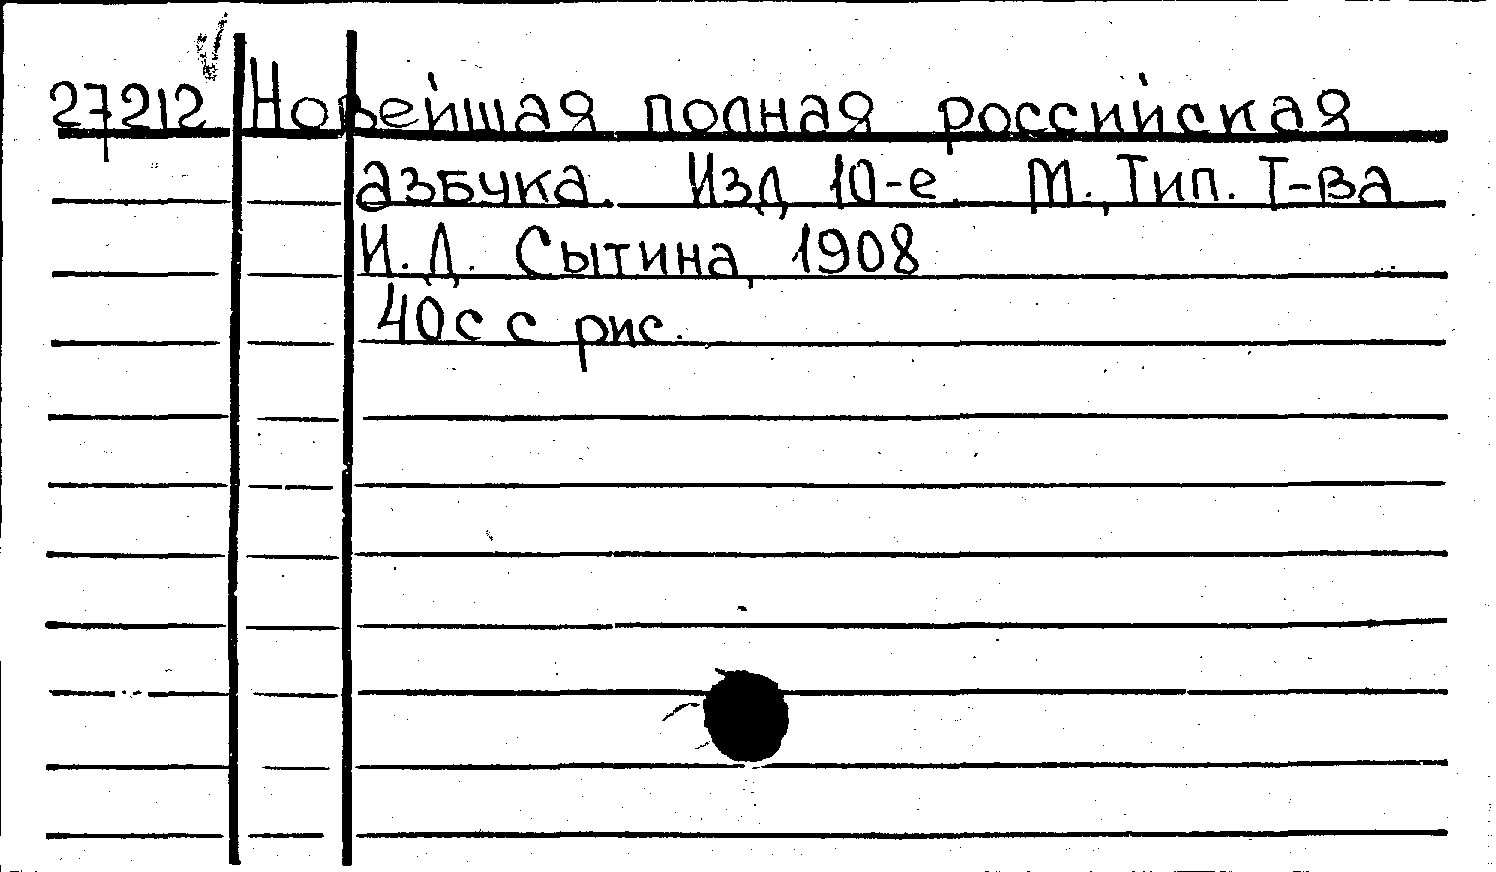 27212 Новейшая полная российская
азбука. Изд 10-е. М., Тип. Т-ва
И. Д. Сытина, 1908
40с с рис.